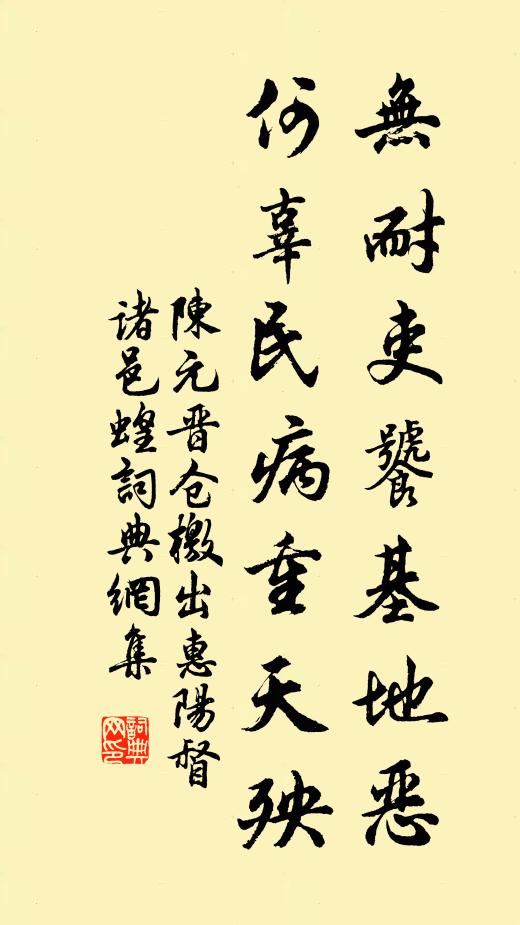 無耐吏饕基地惡
何辜民病重天殃
陳元晋仓檄出惠陽督
诸邑蝗詞典網集
詞典網印